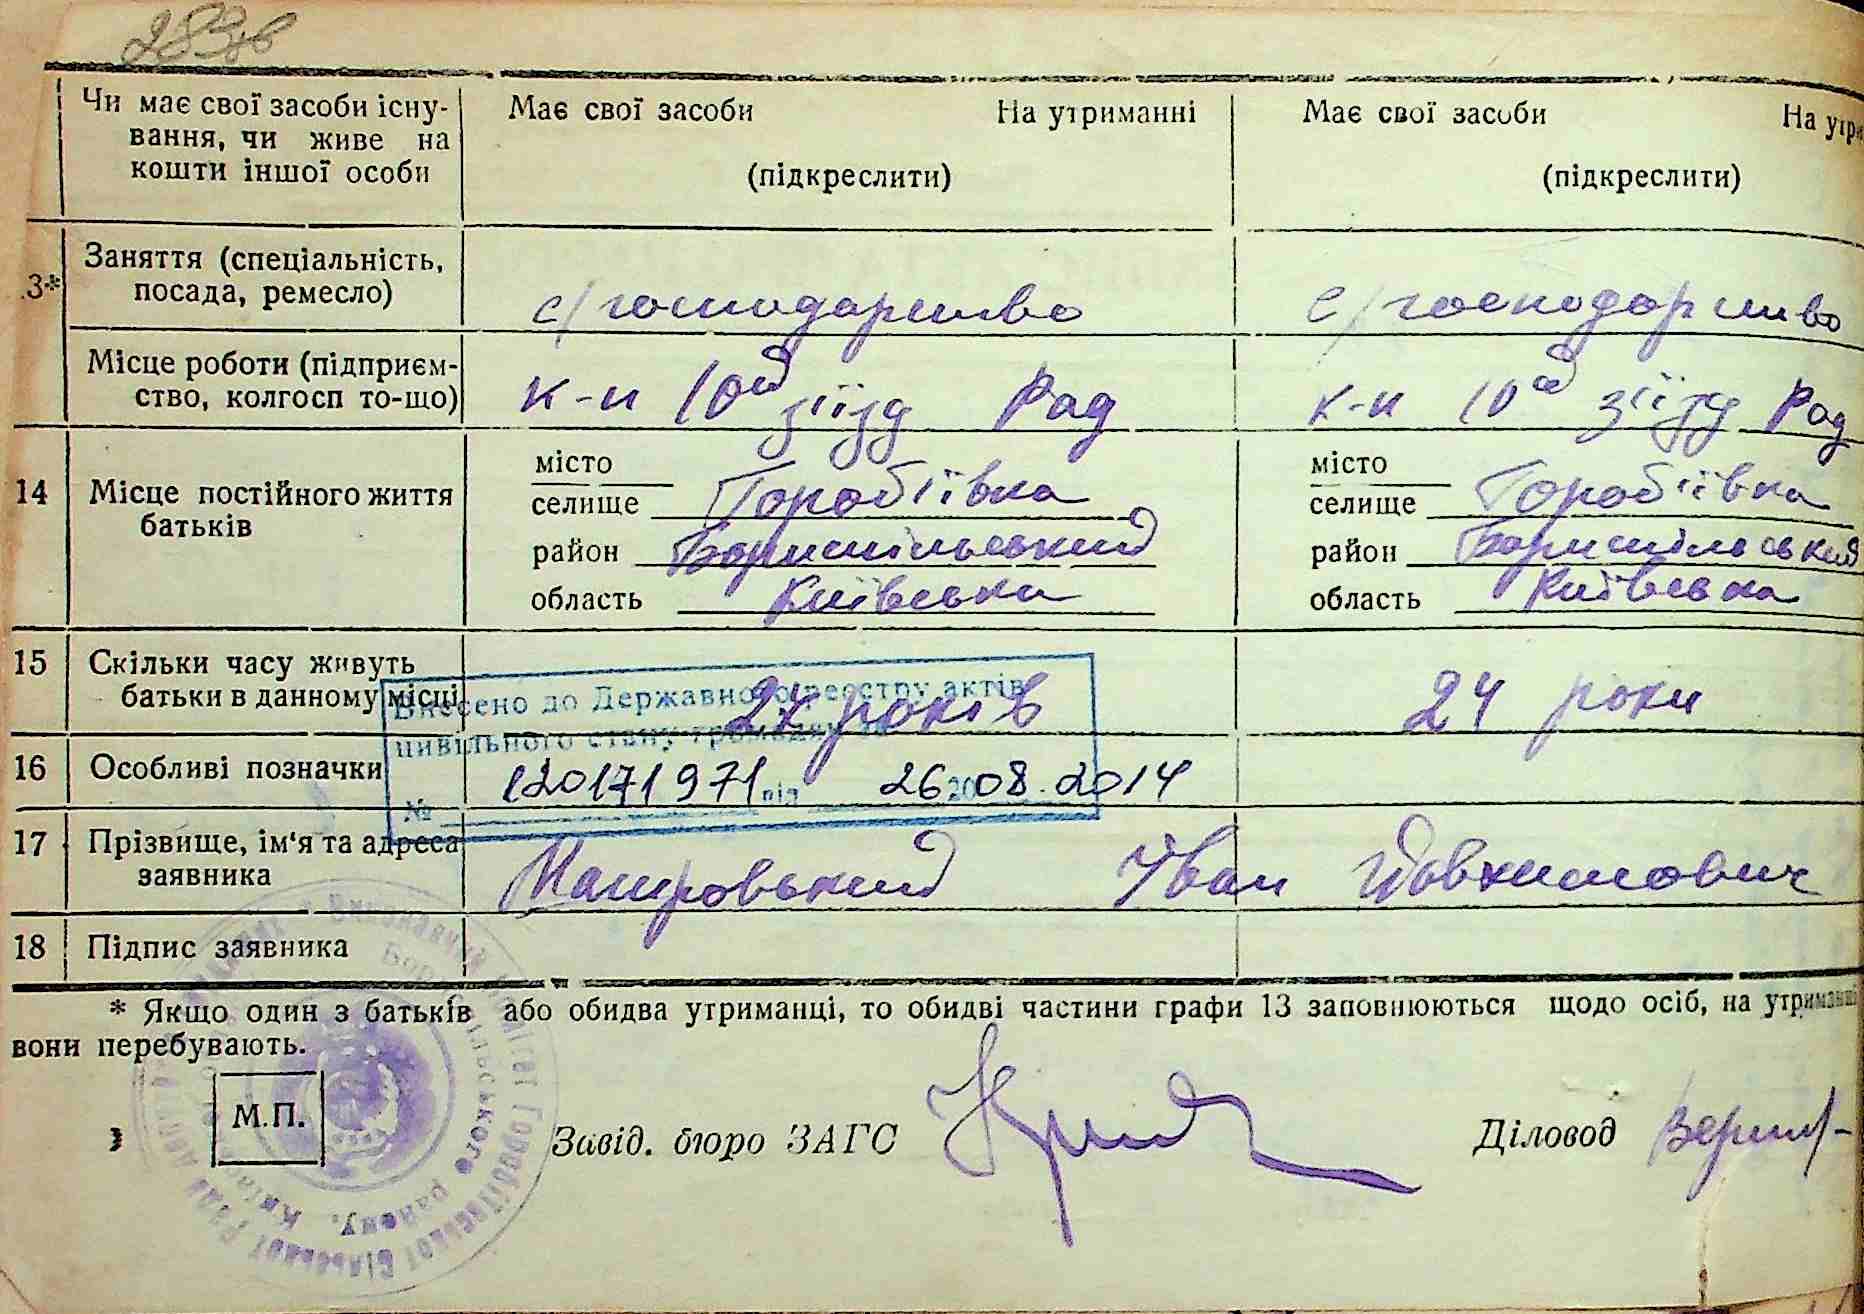 283зв
Чи має свої засоби існу-
вання, чи живе на
кошти іншої особи
Має свої засоби На утриманні
(підкреслити)
Має свої засоби На утри
(підкреслити)
3*
Заняття (спеціальність,
посада, ремесло)
с/господарство
с/господарство
Місце роботи (підприєм-
ство, колгосп то-що)
к-п 10ий зїїзд Рад
к-п 10ий зїїзд Рад
14
Місце постійного життя
батьків
місто
селище Горобіївка
район Бориспільський
область Київська
місто
селище Горобіївка
район Бориспільський
область Київська
15
Скільки часу живуть
батьки в данному місці
24 років
24 роки
Внесено до Державного реєстру актів
цивільного стану громадян за
№ 120171971 від 26.08.2014
16
Особливі позначки
17
Прізвище, ім'я та адреса
заявника
Машровський Іван Йовхимович
18
Підпис заявника
* Якщо один з батьків або обидва утриманці, то обидві частини графи 13 заповнюються щодо осіб, на утриманні
вони перебувають.
М.П.
Завід. бюро ЗАГС
Діловод
Виконавчий комітет Горобіївської Сільської Ради
Бориспільського району, Київ